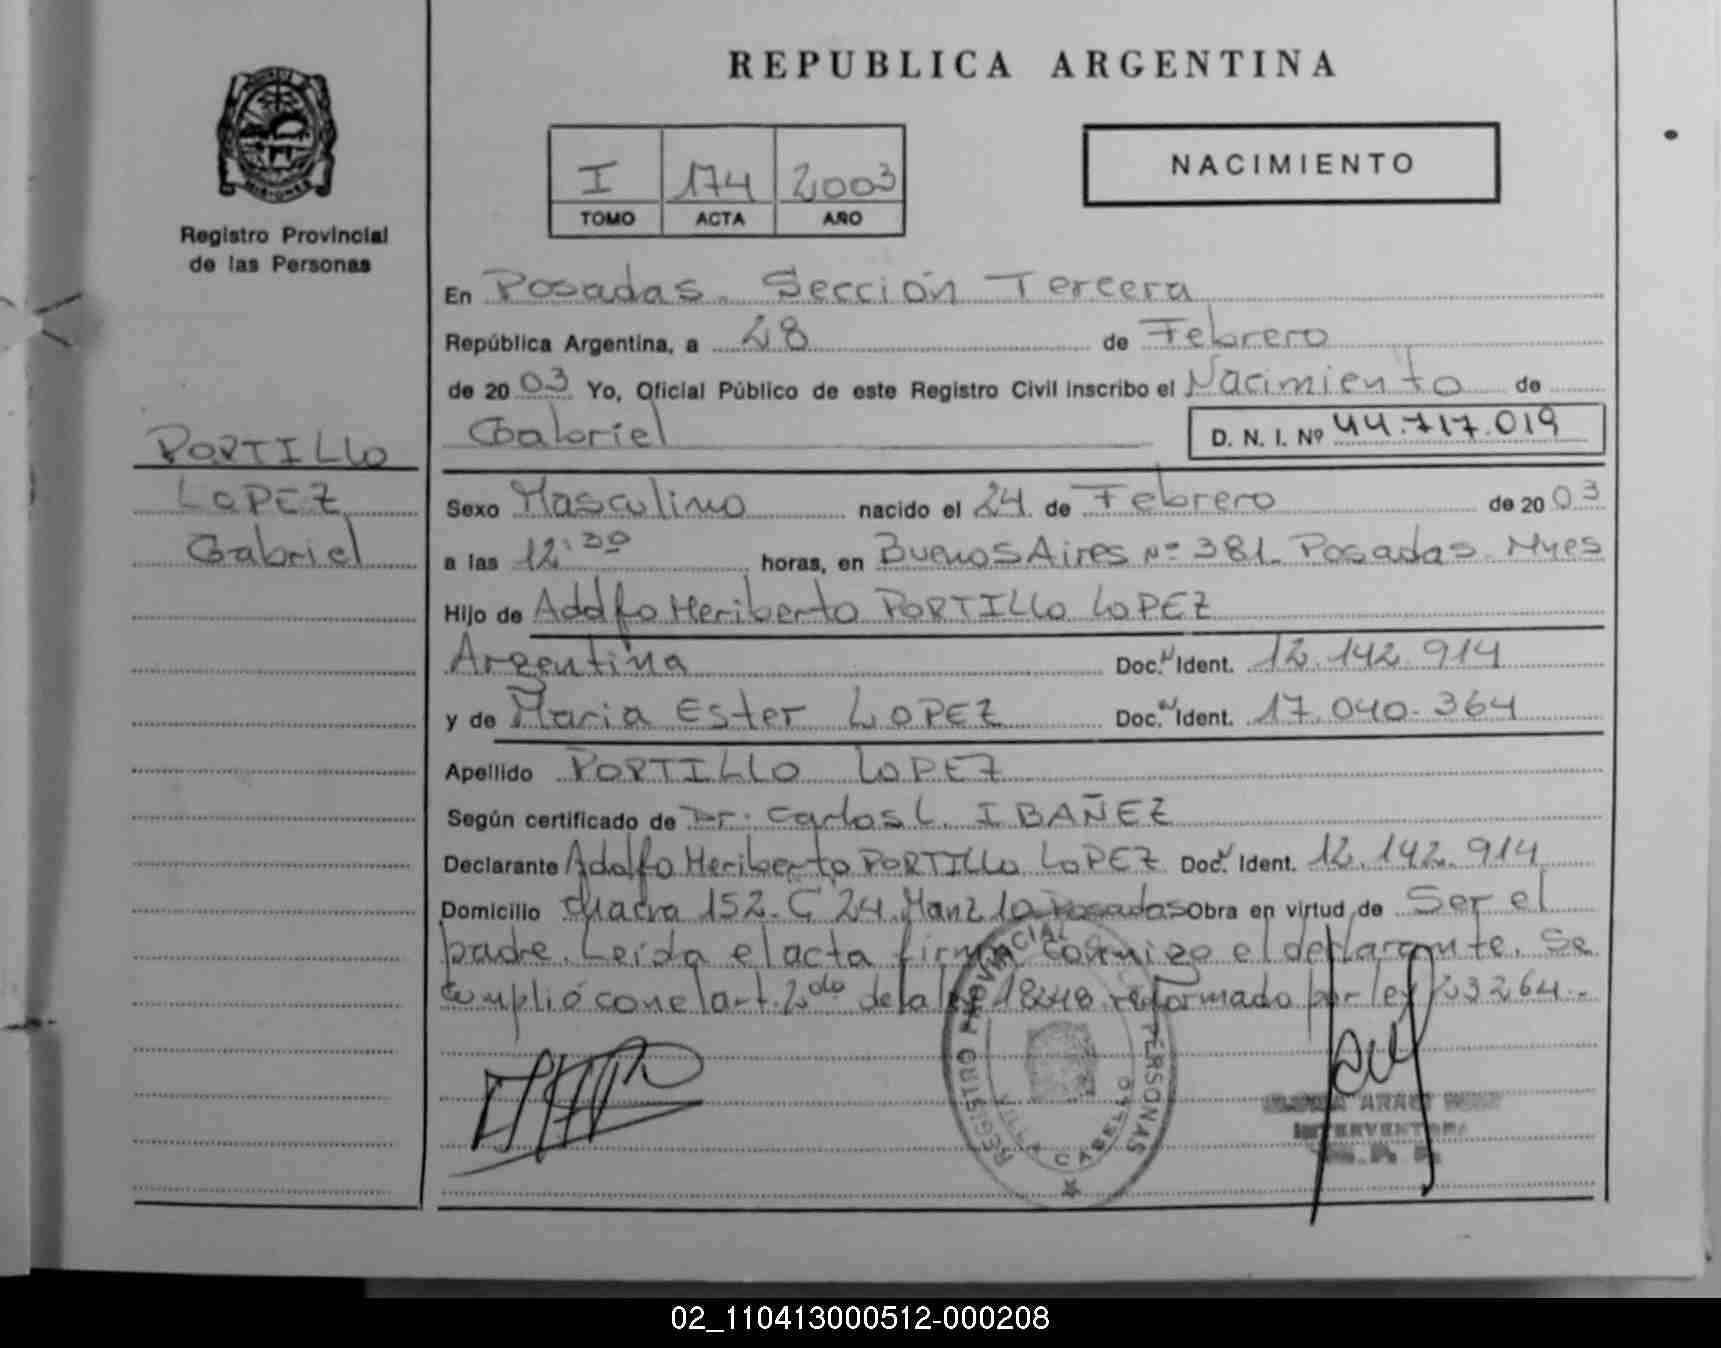 REPUBLICA ARGENTINA
I 174 2003
TOMO ACTA AÑO
NACIMIENTO
MISIONES
Registro Provincial
de las Personas
PORTILLO
LOPEZ
Gabriel
En Posadas. Sección Tercera
República Argentina, a 28 de Febrero
de 2003 Yo, Oficial Público de este Registro Civil inscribo el Nacimiento de
Gabriel D. N. I. Nº 44.717.019
Sexo Masculino nacido el 24 de Febrero de 2003
a las 12:30 horas, en Buenos Aires Nº 381. Posadas. Mnes
Hijo de Adolfo Heriberto PORTILLO LOPEZ
Argentina Doc. N Ident. 12.142.914
y de Maria Ester LOPEZ Doc. N Ident. 17.040.364
Apellido PORTILLO LOPEZ
Según certificado de Dr. Carlos L. IBAÑEZ
Declarante Adolfo Heriberto PORTILLO LOPEZ Doc. N Ident. 12.142.914
Domicilio Chacra 152. C 24. Manz 10 Posadas Obra en virtud de Ser el
padre. Leída el acta firma conmigo el declarante. Se
cumplió con el art. 2do de la ley 18248 reformado por ley 23264.-
REGISTRO PROVINCIAL PERSONAS
VILLA CABELLO
ARACI
INTERVENTORA
R. P. P.
02_110413000512-000208